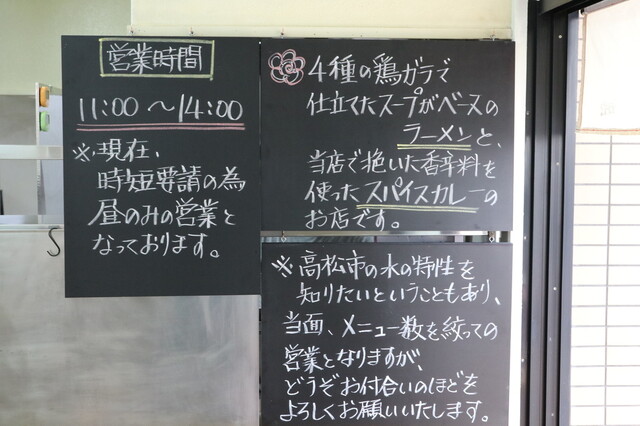 営業時間
11:00 〜14:00
※現在、
時短要請の為
昼のみの営業と
なっております。
4種の鶏ガラで
仕立てたスープがベースの
ラーメンと、
当店で挽いた香辛料を
使ったスパイスカレーの
お店です。
※高松市の水の特性を
知りたいということもあり、
当面、メニュー数を絞っての
営業となりますが、
どうぞお付合いのほどを
よろしくお願いいたします。